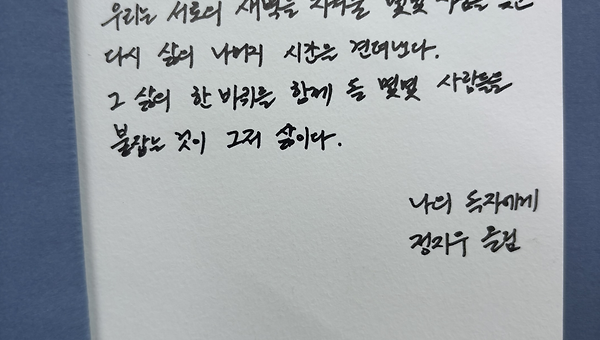 우리는 서로의 새벽을 지켜줄 몇몇 사람을
다시 삶의 나머지 시간을 견뎌낸다.
그 삶의 한 바퀴를 함께 돌 몇몇 사람들을
붙잡는 것이 그저 삶이다.
나의 독자에게
정지우 드림